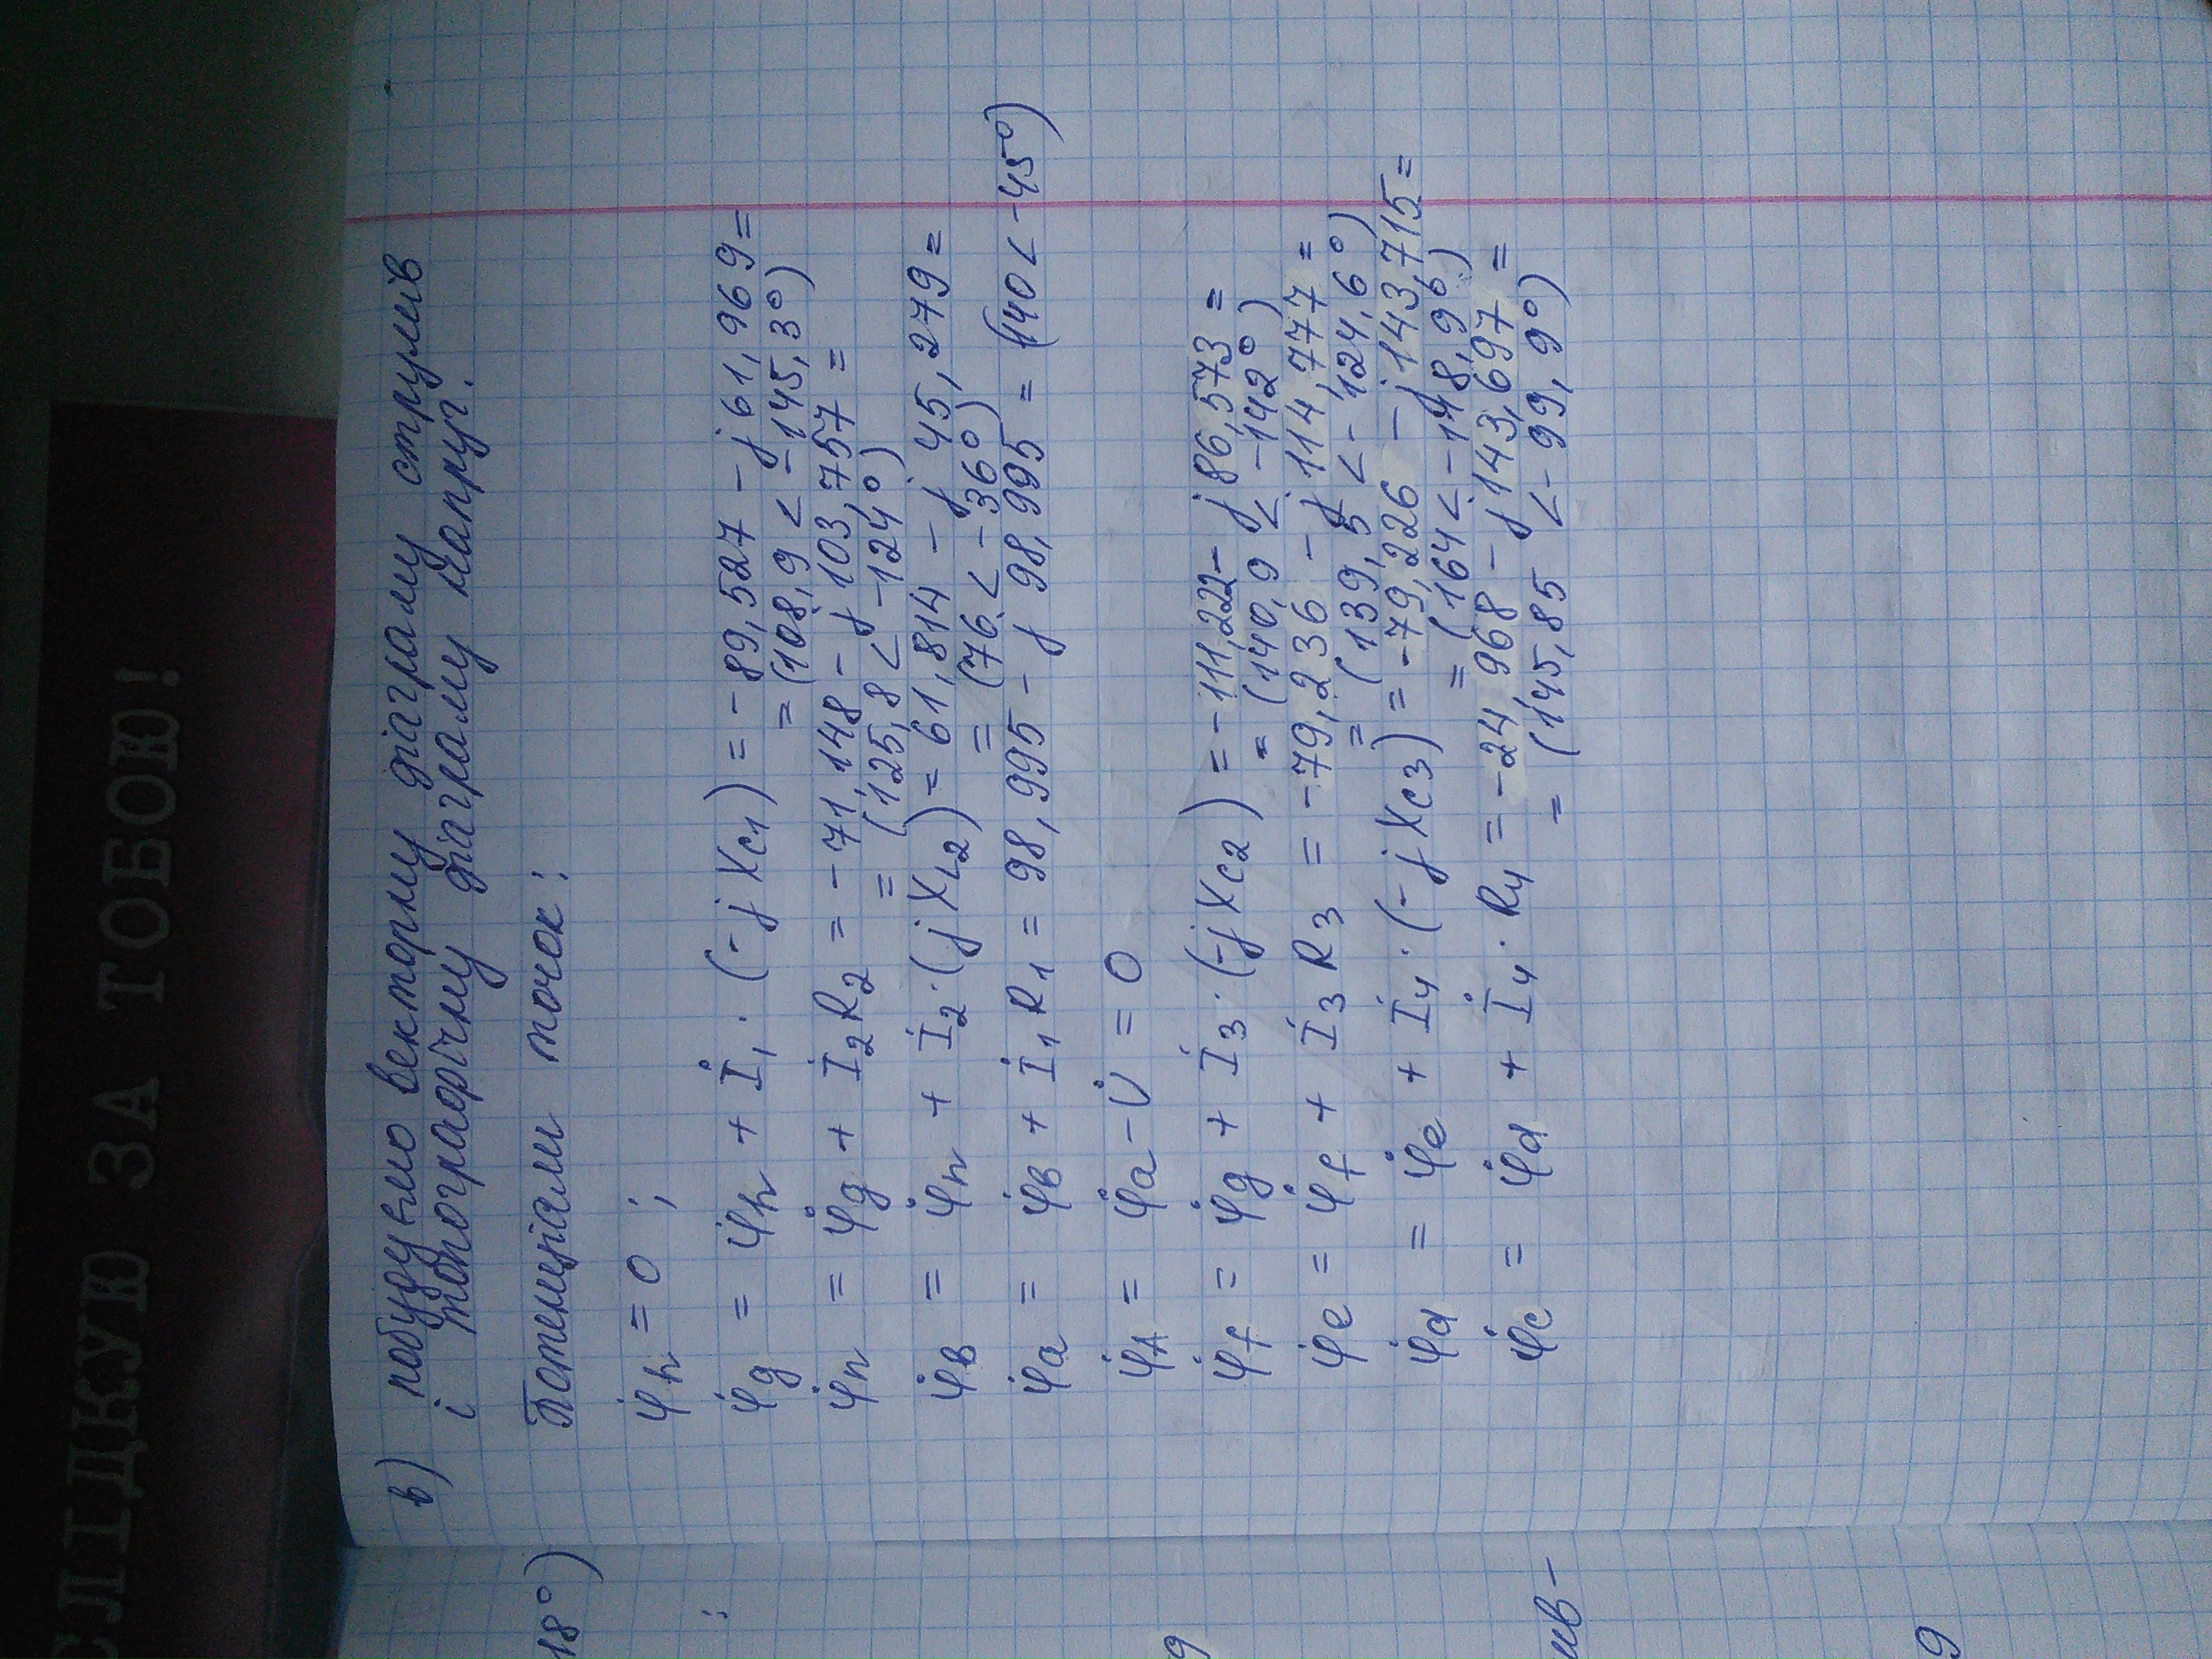 СЛІДКУЮ ЗА ТОБОЮ!
в) побудуємо векторну діаграму струмів
і топографічну діаграму напруг.
Потенціали точок:
φ̇h = 0 ;
φ̇g = φ̇h + İ₁ · (-jXc1) = -89,527 - j61,969 =
= (108,9 < -145,3°)
φ̇n = φ̇g + İ₂R₂ = -71,148 - j103,757 =
= (125,8 < -124°)
φ̇в = φ̇n + İ₂ · (jXL2) = 61,814 - j 45,279 =
= (76 < -36°)
φ̇a = φ̇в + İ₁R₁ = 98,995 - j 98,995 = (140 < -45°)
φ̇A = φ̇a - U̇ = 0
φ̇f = φ̇g + İ₃ · (-jXc2) = -111,222 - j86,573 =
= (140,9 < -142°)
φ̇e = φ̇f + İ₃R₃ = -79,236 - j114,777 =
= (139,5 < -124,6°)
φ̇d = φ̇e + İ₄ · (-jXc3) = -79,226 - j143,715 =
= (164 < -148,9°)
φ̇c = φ̇d + İ₄ · R₄ = -24,968 - j143,697 =
= (145,85 < -99,9°)
18°)
:
9
ив-
9